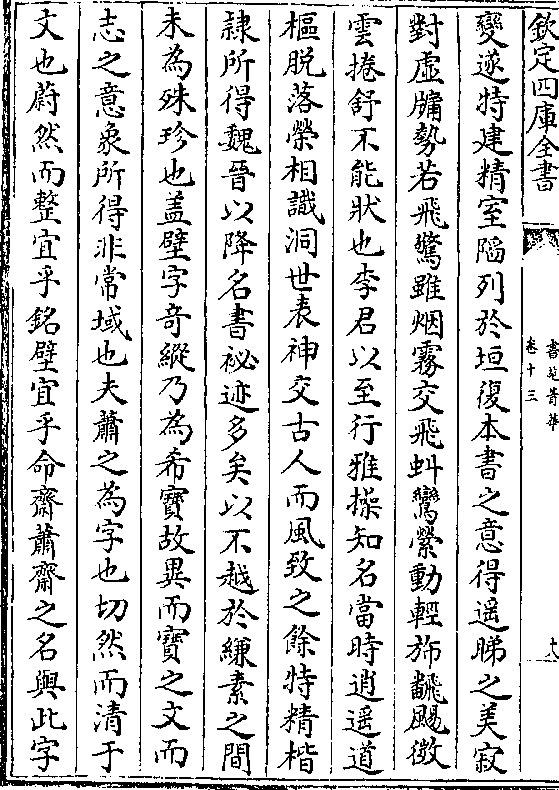 欽定四庫全書
書苑菁華
卷十三
十八
變遂特建精室陷列於垣復本書之意得遥睇之美寂
對虚牗勢若飛驚雖烟霧交飛虯鸞縈動輕旆翻颺微
雲捲舒不能狀也李君以至行雅操知名當時逍遥道
樞脱落榮相識洞世表神交古人而風致之餘特精楷
隷所得魏晉以降名書祕迹多矣以不越於縑素之間
未為殊珍也盖壁字奇縱乃為希寳故異而寳之文而
志之意象所得非常域也夫蕭之為字也切然而清于
文也蔚然而整宜乎銘壁宜乎命齋蕭齋之名與此字